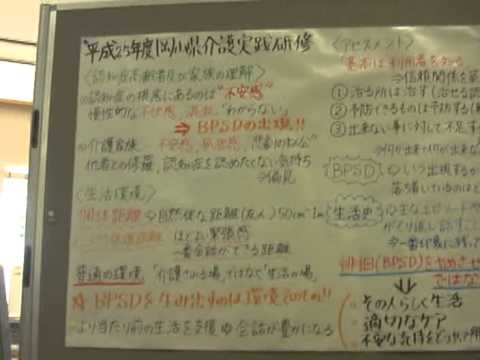 平成25年度岡山県介護実践研修
〈認知症高齢者及び家族の理解〉
認知症の根底にあるのは"不安感"
慢性的な不快感、混乱、「わからない」
⇒BPSDの出現!!
介護家族 不安感、
他者との 、認知症を認めたくない気持ち
⇒偏見
〈生活環境〉
個体距離⇒自然体な距離(友人)50cm~1m
ほどよい緊張感
一番会話ができる距離
普通の環境 「介護される場」ではなく「生活の場」
☆BPSDを生み出すのは環境そのもの!!
より当たり前の生活を支援⇒会話が豊かになる
〈アセスメント〉
「基本は利用者を知る
⇒信頼関係を築
①治る所は治す(治せる認
②予防できるものは予防する(
③出来ない事に対して不足す
⇒何が出来て何が出来な
BPSD ⇒いう出現するか
落ち着いているのはど
生活史 ⇒主なエピソードや
がくり返し話すこ
⇒一番印象に残って
(BPSD)をやめさせ
ではな
・その人らしく生活
・適切なケア
・不安な気持をどうケア